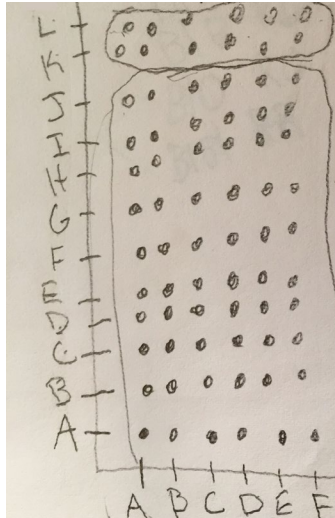 L
K
J
I
H
G
F
E
D
C
B
A
A B C D E F